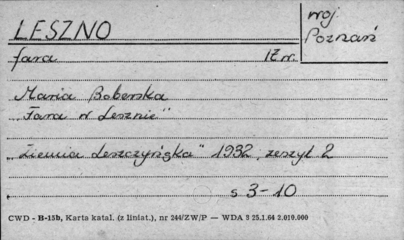 LESZNO
woj.
Poznań
fara 17 w.
Maria Boberska
"Fara w Lesznie"
"Ziemia Leszczyńska" 1932, zeszyt 2
s 3-10
CWD - B-15b, Karta katal. (z liniat.), nr 244/ZW/P — WDA 3 25.1.64 2.010.000